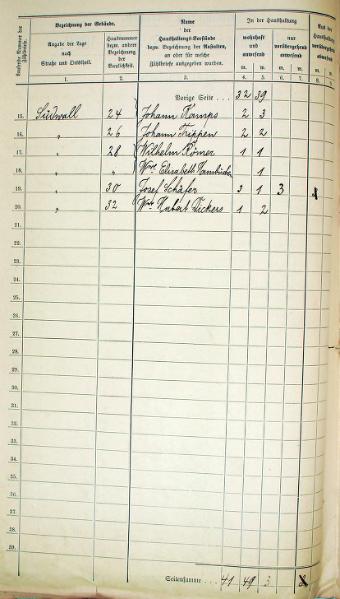 Laufende Nummer der Zählbriefe.
Bezeichnung der Gebäude.
Angabe der Lage nach Straße und Ortsteil.
Hausnummer bezw. andere Bezeichnung der Baulichkeit.
Name der Haushaltungs-Vorstände bezw. Bezeichnung der Anstalten, an oder für welche Zählbriefe ausgegeben wurden.
In der Haushaltung
wohnhaft und anwesend
nur vorübergehend anwesend
Aus der Haushaltung vorübergehend abwesend
m. w. m. w. m. w.
1. 2. 3. 4. 5. 6. 7. 8. 9.
Vorige Seite . . . 32 39
15. Südwall 24 Johann Kamps 2 3
16. " 26 Johann Trippen 2 2
17. " 28 Wilhelm Römer 1 1
18. " " Wwe. Elisabeth 1
19. " 30 Josef Schäfer 3 1 3
20. " 32 Wwe. Hubert Dickers 1 2
21.
22.
23.
24.
25.
26.
27.
28.
29.
30.
31.
32.
33.
34.
35.
36.
37.
38.
39.
Seitensumme . . . 41 49 3